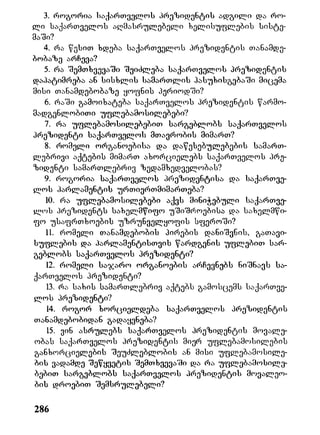 3. როგორია საქართველოს პრეზიდენტის ადგილი და რო-
ლი საქართველოს აღმასრულებელი ხელისუფლების სისტე-
მაში?
4. რა წესით ხდება საქართველოს პრეზიდენტის თანამდე-
ბობაზე არჩევა?
5. რა შემთხვევაში შეიძლება საქართველოს პრეზიდენტის
დაპატიმრება ან სისხლის სამართლის პასუხისგებაში მიცემა
მისი თანამდებობაზე ყოფნის პერიოდში?
6. რაში გამოიხატება საქართველოს პრეზიდენტის წარმო-
მადგენლობითი უფლებამოსილებები?
7. რა უფლებამოსილებებით სარგებლობს საქართველოს
პრეზიდენტი საქართველოს მთავრობის მიმართ?
8. რომელი ორგანოებისა და დაწესებულებების სამართ-
ლებრივი აქტების მიმართ ახორციელებს საქართველოს პრე-
ზიდენტი სამართლებრივ ზედამხედველობას?
9. როგორია საქართველოს პრეზიდენტისა და საქართვე-
ლოს პარლამენტის ურთიერთმიმართება?
10. რა უფლებამოსილებები აქვს მინიჭებული საქართვე-
ლოს პრეზიდენტს სახელმწიფო უშიშროებისა და სახელმწი-
ფო უსაფრთხოების უზრუნველყოფის სფეროში?
11. რომელი თანამდებობის პირების დანიშვნის, გათავი-
სუფლების და პარლამენტისთვის წარდგენის უფლებით სარ-
გებლობს საქართველოს პრეზიდენტი?
12. რომელი საჯარო ორგანოების არჩევნებს ნიშნავს სა-
ქართველოს პრეზიდენტი?
13. რა სახის სამართლებრივ აქტებს გამოსცემს საქართვე-
ლოს პრეზიდენტი?
14. როგორ ხორციელდება საქართველოს პრეზიდენტის
თანამდებობიდან გადაყენება?
15. ვინ ასრულებს საქართველოს პრეზიდენტის მოვალე-
ობას საქართველოს პრეზიდენტის მიერ უფლებამოსილების
განხორციელების შეუძლებლობის ან მისი უფლებამოსილე-
ბის ვადამდე შეწყვეტის შემთხვევაში და რა უფლებამოსილე-
ბებით სარგებლობს საქართველოს პრეზიდენტის მოვალეო-
ბის დროებით შემსრულებელი?
286